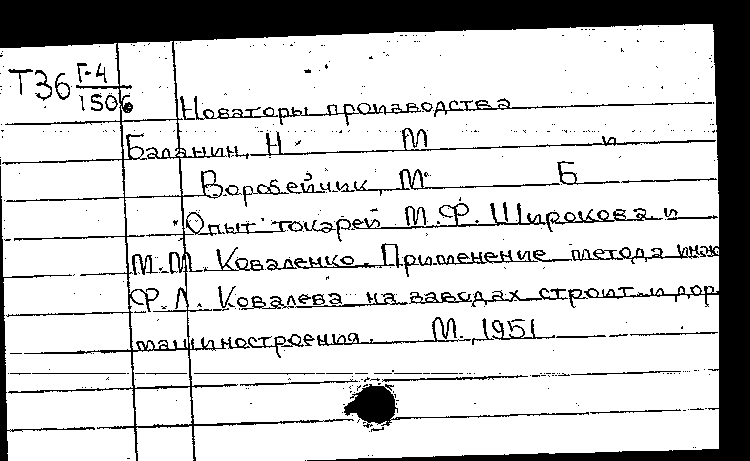 Т36 Г-4
1506
Новаторы производства
Баланин, Н. М и
Воробейчик, М. Б
Опыт токарей М.Ф. Широкова и
М.М. Коваленко. Применение метода инж
Ф.Л. Ковалева на заводах строит. и дор.
машиностроения. М., 1951